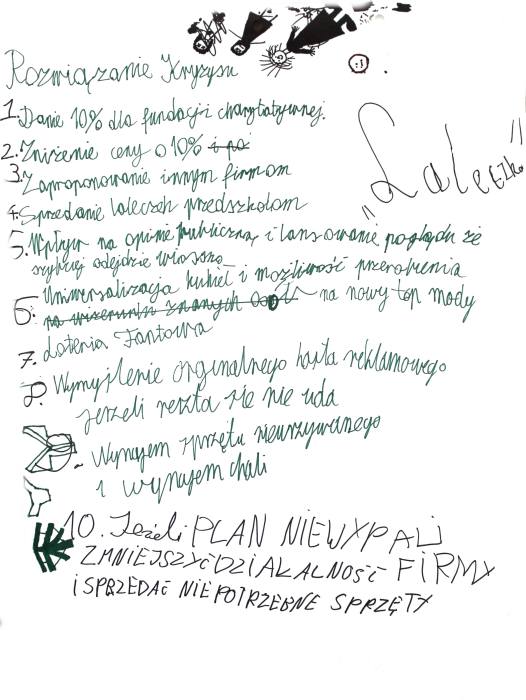 Rozwiązanie Kryzysu
1. Danie 10% dla fundacji charytatywnej.
2. Zniżenie ceny o 10% i po
3. Zaproponowanie innym firmom
4. Sprzedanie laleczek przedszkolom
"Laleczka"
5. Wpływ na opinie publiczną i lansowanie poglądu że
szybciej odejdzie wiosna
6. Uniwersalizacja kukieł i możliwość przerobienia
na wizerunki znanych osób na nowy top mody
7. Loteria Fantowa
8. Wymyślenie orginalnego hasła reklamowego
jerzeli reszta sie nie uda
9. Wynajem sprzętu nieurzywanego
i wynajem chali
10. Jeżeli PLAN NIEWYPALI
ZMNIEJSZYĆ DZIAŁALNOŚĆ FIRMY
i SPRZEDAĆ NIEPOTRZEBNE SPRZĘTY